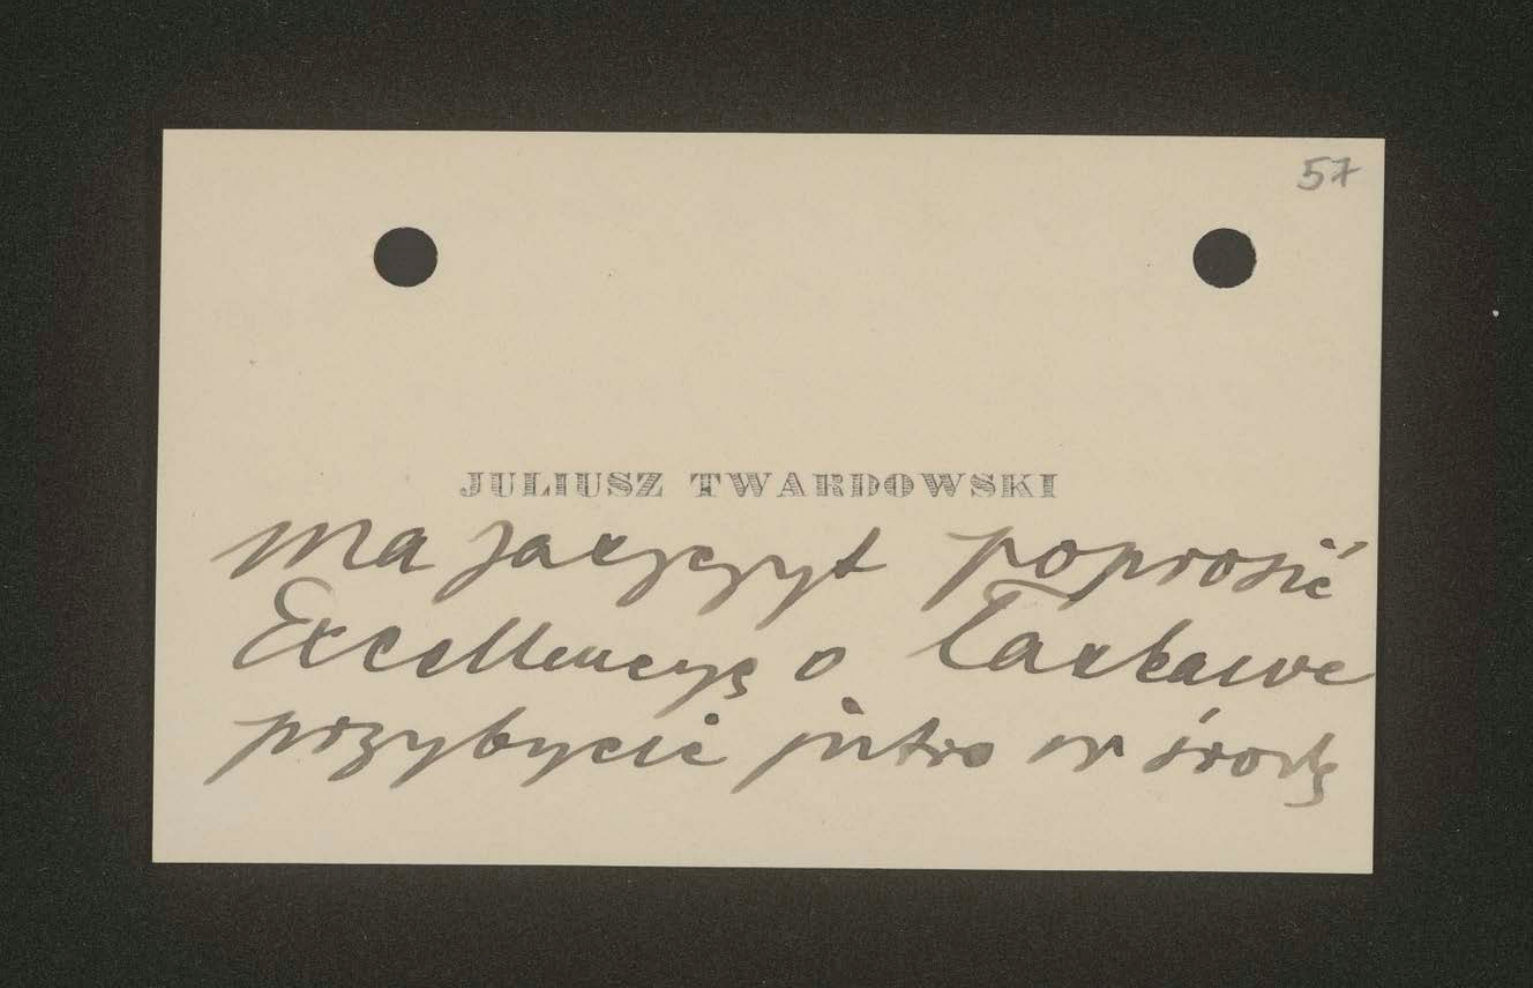 57
JULIUSZ TWARDOWSKI
ma zaszczyt poprosić
Excellencyę o łaskawe
przybycie jutro w środę